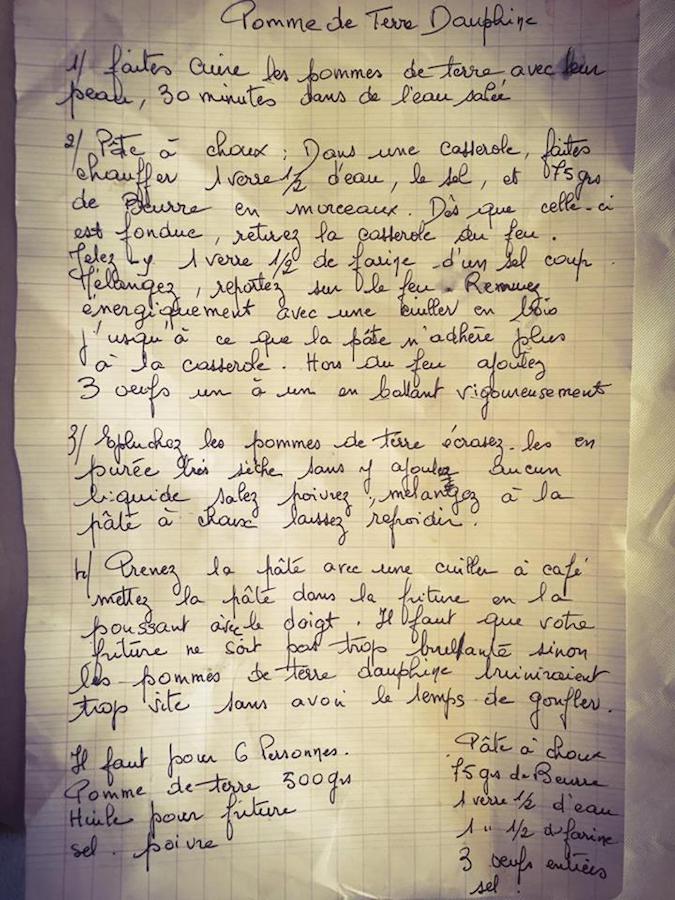 Pomme de Terre Dauphine
1/ faites Cuire les pommes de terre avec leur
peau, 30 minutes dans de l'eau salée
2/ Pâte à choux : Dans une casserole, faites
chauffer 1 verre 1/2 d'eau, le sel, et 75 grs
de Beurre en morceaux. Dès que celle-ci
est fondue, retirez la casserole du feu.
Jetez-y 1 verre 1/2 de farine d'un sel coup.
Mélangez, reportez sur le feu. Remuez
énergiquement avec une cuiller en bois
j'usqu'à ce que la pâte n'adhère plus
à la casserole. Hors du feu ajoutez
3 oeufs un à un en battant vigoureusement
3/ Epluchez les pommes de terre écrasez-les en
purée très sèche sans y ajoutez aucun
liquide salez poivrez, mélangez à la
pâte à choux laissez refroidir.
4/ Prenez la pâte avec une cuiller à café
mettez la pâte dans la friture en la
poussant avec le doigt. Il faut que votre
friture ne soit pas trop brullante sinon
les pommes de terre dauphine bruniraient
trop vite sans avoir le temps de gonfler.
Il faut pour 6 Personnes.
Pomme de terre 500 grs
Huile pour friture
sel. poivre
Pâte à choux
75 grs de Beurre
1 verre 1/2 d'eau
1 " 1/2 d farine
3 oeufs entiers
sel.